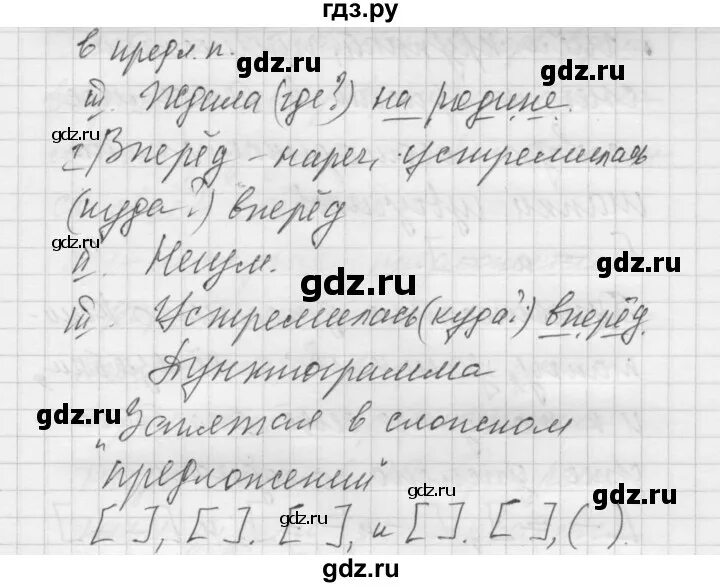 гдз.ру
в предл. п.
III. Ждала (где?) на родине.
I Вперёд - нареч., устремилась
(куда?) вперёд
II. Неизм.
III. Устремилась (куда?) вперёд.
Пунктограмма
"Запятая в сложном
предложении"
[ ], [ ]. [ ], и [ ]. [ ], ( ).
gdz.ru
gdz.ru
gdz.ru
gdz.ru
gdz.ru
gdz.ru
gdz.ru
gdz.ru
gdz.ru
gdz.ru
gdz.ru
gdz.ru
gdz.ru